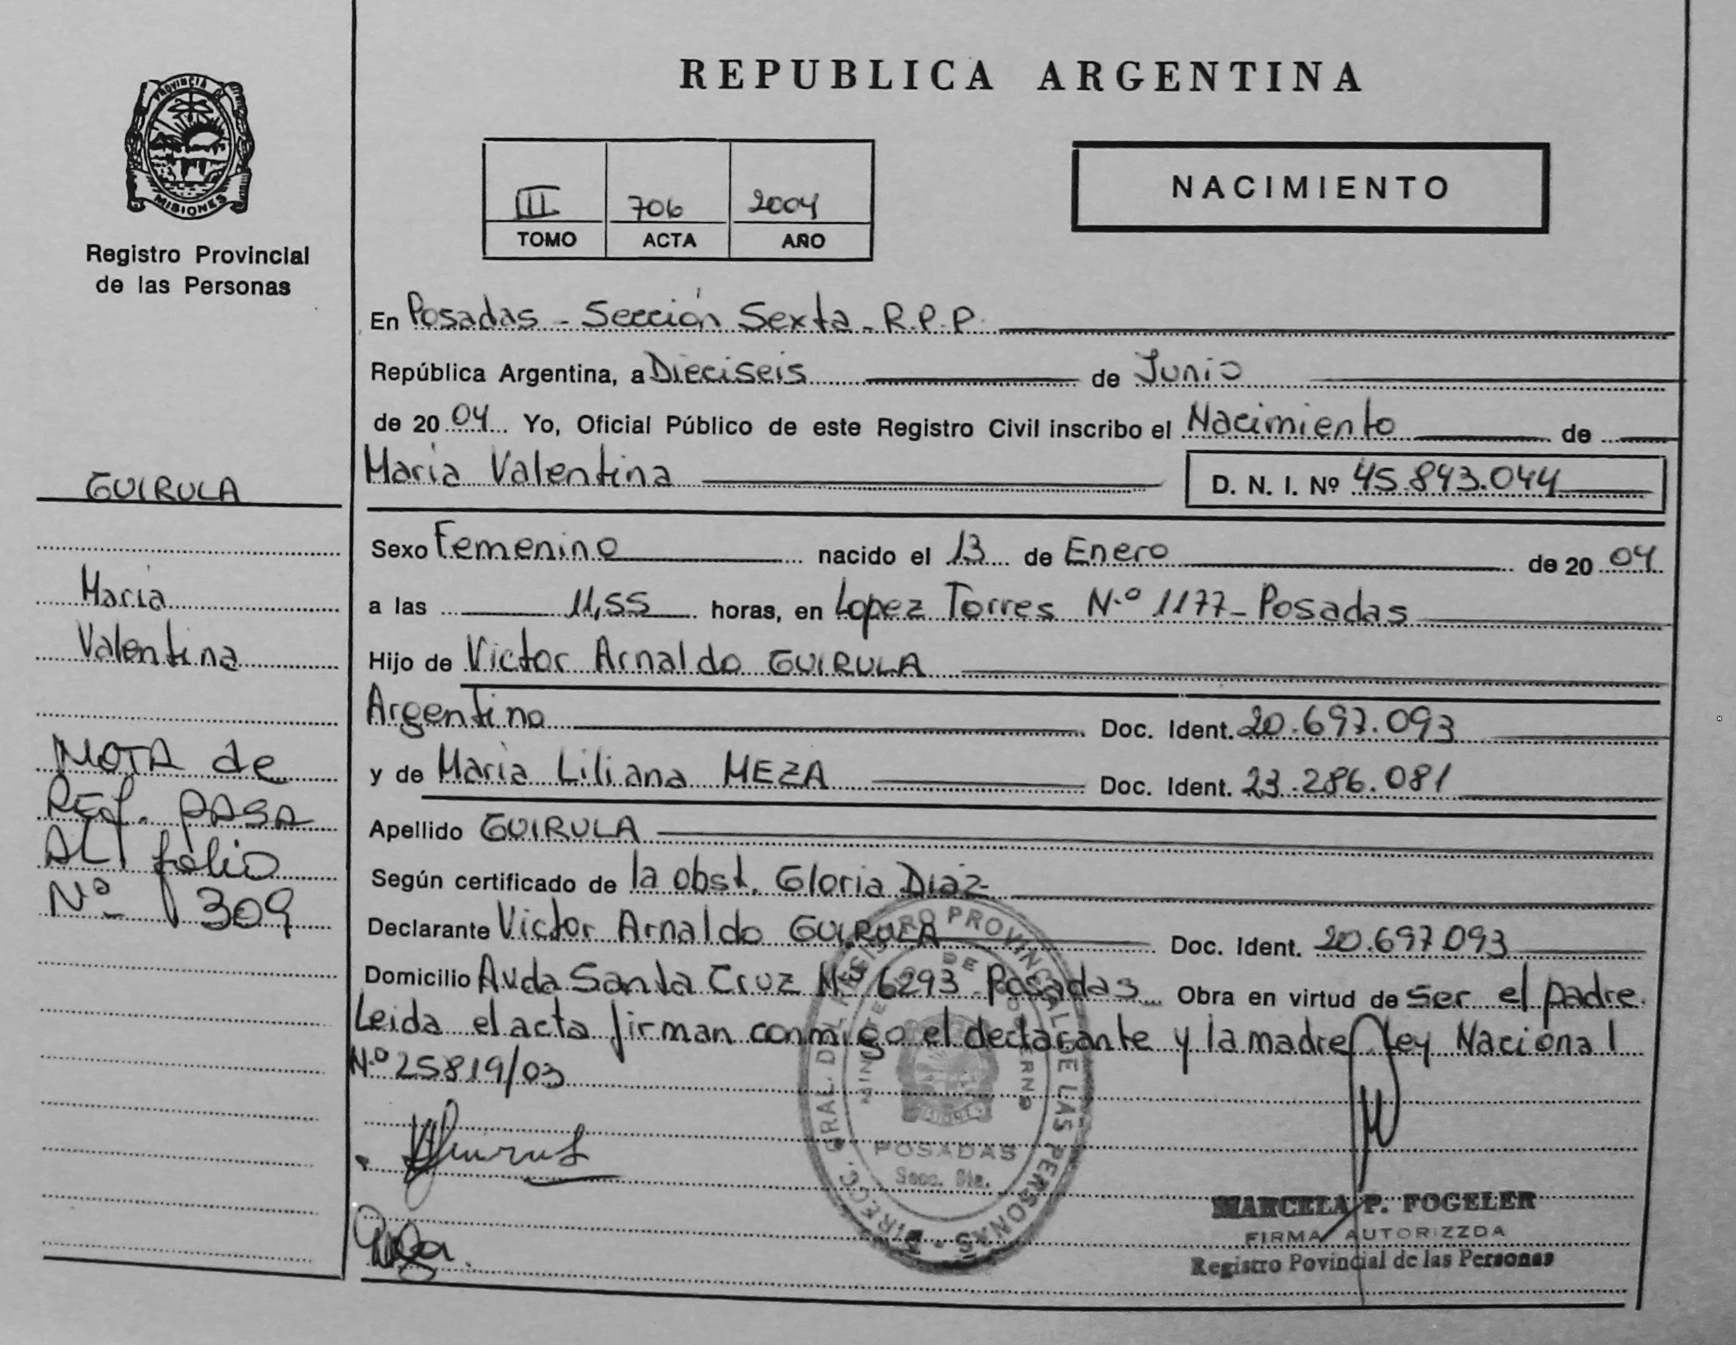 REPUBLICA ARGENTINA
PROVINCIA DE
MISIONES
Registro Provincial
de las Personas
III 706 2004
TOMO ACTA AÑO
NACIMIENTO
En Posadas - Sección Sexta - R.P.P.
República Argentina, a Dieciseis de Junio
de 2004 Yo, Oficial Público de este Registro Civil inscribo el Nacimiento de
Maria Valentina D. N. I. Nº 45.843.044
GUIRULA
Maria
Valentina
NOTA de
REF. PASA
AL folio
Nº 309
Sexo Femenino nacido el 13 de Enero de 2004
a las 11,55 horas, en Lopez Torres N.º 1177 - Posadas
Hijo de Victor Arnaldo GUIRULA
Argentino Doc. Ident. 20.697.093
y de Maria Liliana MEZA Doc. Ident. 23.286.081
Apellido GUIRULA
Según certificado de la obst. Gloria Diaz
Declarante Victor Arnaldo GUIRULA Doc. Ident. 20.697.093
Domicilio Avda Santa Cruz Nº 6293 Posadas Obra en virtud de ser el padre.
Leida el acta firman conmigo el declarante y la madre Ley Nacional
N.º 25819/03
DIRECC. GRAL. DEL REGISTRO PROVINCIAL DE LAS PERSONAS
POSADAS
Secc. 6ta.
MARCELA P. FOGELER
FIRMA AUTORIZZDA
Registro Povincial de las Personas